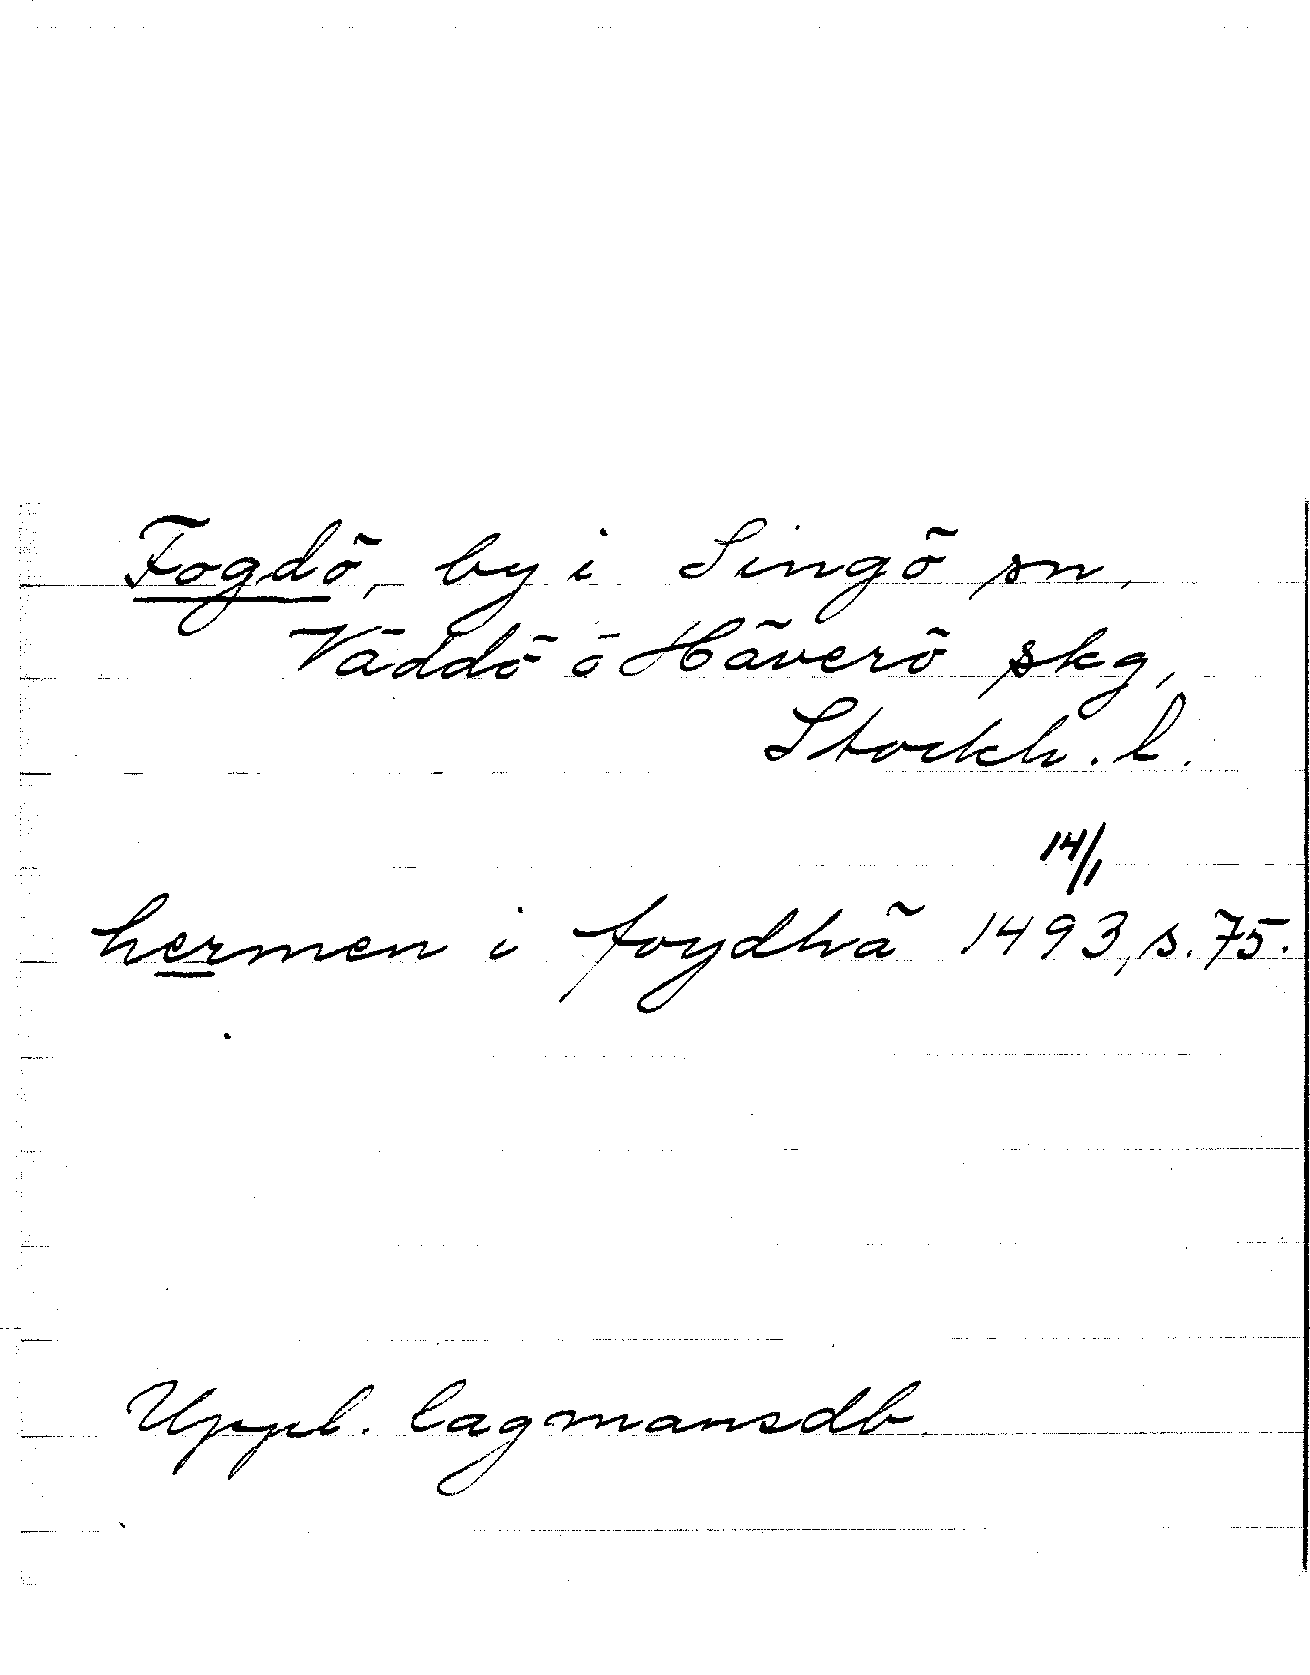 Fogdö, by i Singö sn,
Väddö o Häverö skg,
Stockh. l.
14/1
hermen i foydhä 1493, s. 75.
Uppl. lagmansdb.